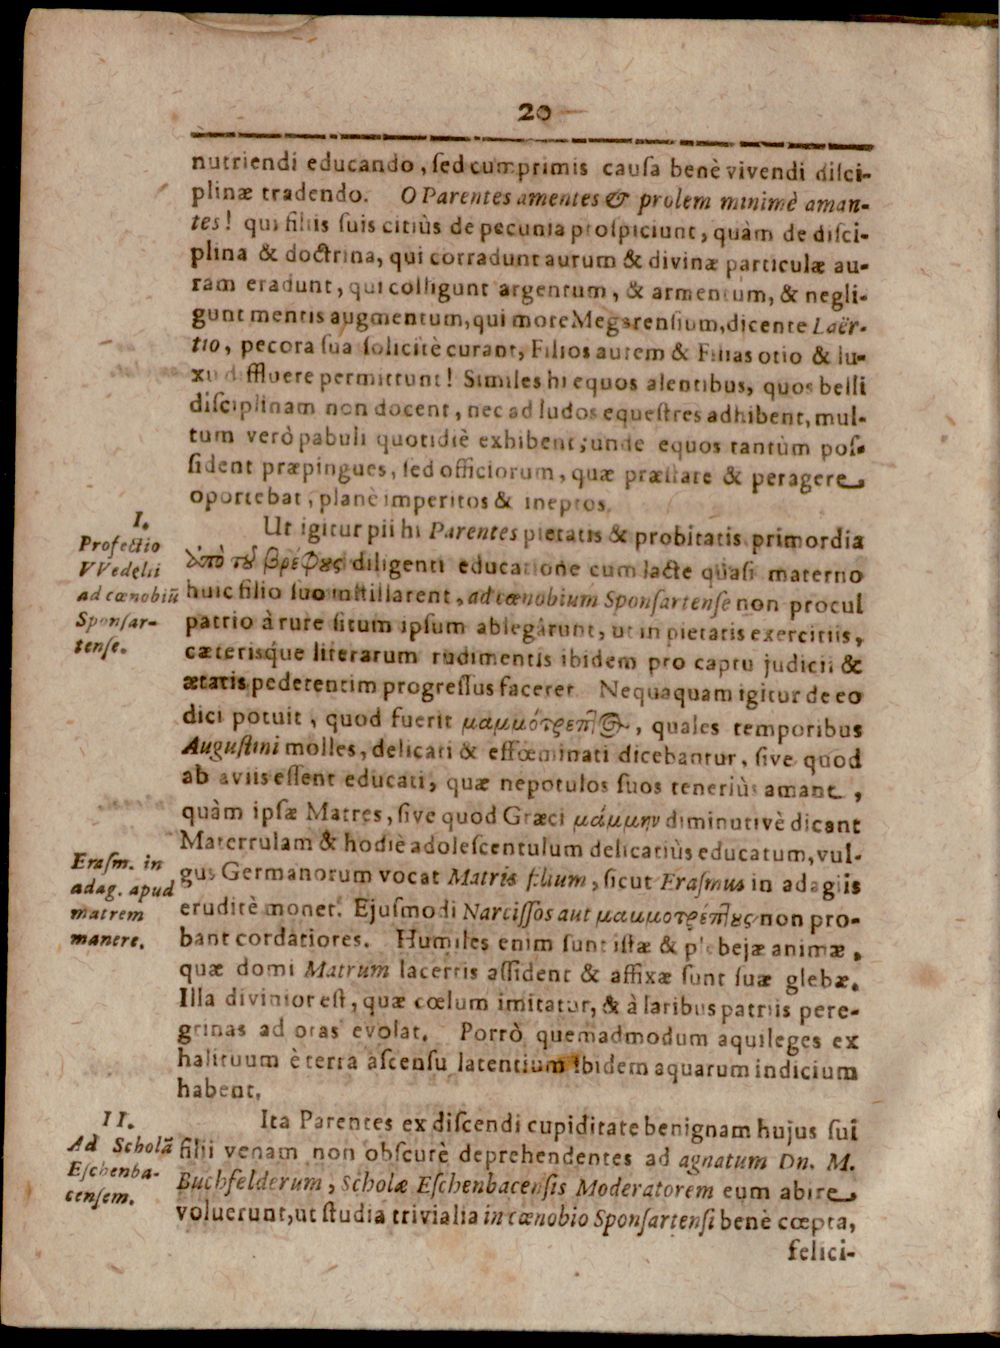 20
nutriendi educando, ſed cumprimis cauſa benè vivendi diſci-
plinæ tradendo. O Parentes amentes & prolem minimè aman-
tes! qui filiis ſuis citiùs de pecunia proſpiciunt, quàm de diſci-
plina & doctrina, qui corradunt aurum & divinæ particulæ au-
ram eradunt, qui colligunt argentum, & armentum, & negli-
gunt mentis augmentum, qui more Megarenſium, dicente Laër-
tio, pecora ſua ſolicitè curant, Filios autem & Filias otio & lu-
xu diffluere permittunt! Similes hi equos alentibus, quos belli
diſciplinam non docent, nec ad ludos equeſtres adhibent, mul-
tum verò pabuli quotidiè exhibent; unde equos tantùm poſ-
ſident præpingues, ſed officiorum, quæ præſtare & peragere
oportebat, planè imperitos & ineptos.
I.
Profectio
VVedelii
ad cœnobiũ
Sponſar-
tenſe.
Ut igitur pii hi Parentes pietatis & probitatis primordia
ὑπὸ τοῦ βρέφους diligenti educatione cum lacte quaſi materno
huic filio ſuo inſtillarent, ad cœnobium Sponſartenſe non procul
patrio à rure ſitum ipſum ablegârunt, ut in pietatis exercitiis,
cæterisque literarum rudimentis ibidem pro captu judicii &
ætatis pedetentim progreſſus faceret. Nequaquam igitur de eo
dici potuit, quod fuerit μαμμότρεπτος, quales temporibus
Auguſtini molles, delicati & effœminati dicebantur, ſive quod
ab aviis eſſent educati, quæ nepotulos ſuos teneriùs amant,
quàm ipſæ Matres, ſive quod Græci μάμμην diminutivè dicant
Materrulam & hodiè adoleſcentulum delicatiùs educatum, vul-
gus Germanorum vocat Matris filium, ſicut Eraſmus in adagiis
eruditè monet. Ejuſmodi Narciſſos aut μαμμοτρέπτους non pro-
bant cordatiores. Humiles enim ſunt iſtæ & plebejæ animæ,
quæ domi Matrum lacertis aſſident & affixæ ſunt ſuæ glebæ.
Illa divinior eſt, quæ cœlum imitatur, & à laribus patriis pere-
grinas ad oras evolat. Porrò quemadmodum aquileges ex
halituum è terra aſcenſu latentium ibidem aquarum indicium
habent.
Eraſm. in
adag. apud
matrem
manere.
II.
Ad Scholã
Eſchenba-
cenſem.
Ita Parentes ex diſcendi cupiditate benignam hujus ſui
filii venam non obſcurè deprehendentes ad agnatum Dn. M.
Buchfelderum, Scholæ Eſchenbacenſis Moderatorem eum abire
voluerunt, ut ſtudia trivialia in cœnobio Sponſartenſi benè cœpta,
felici-